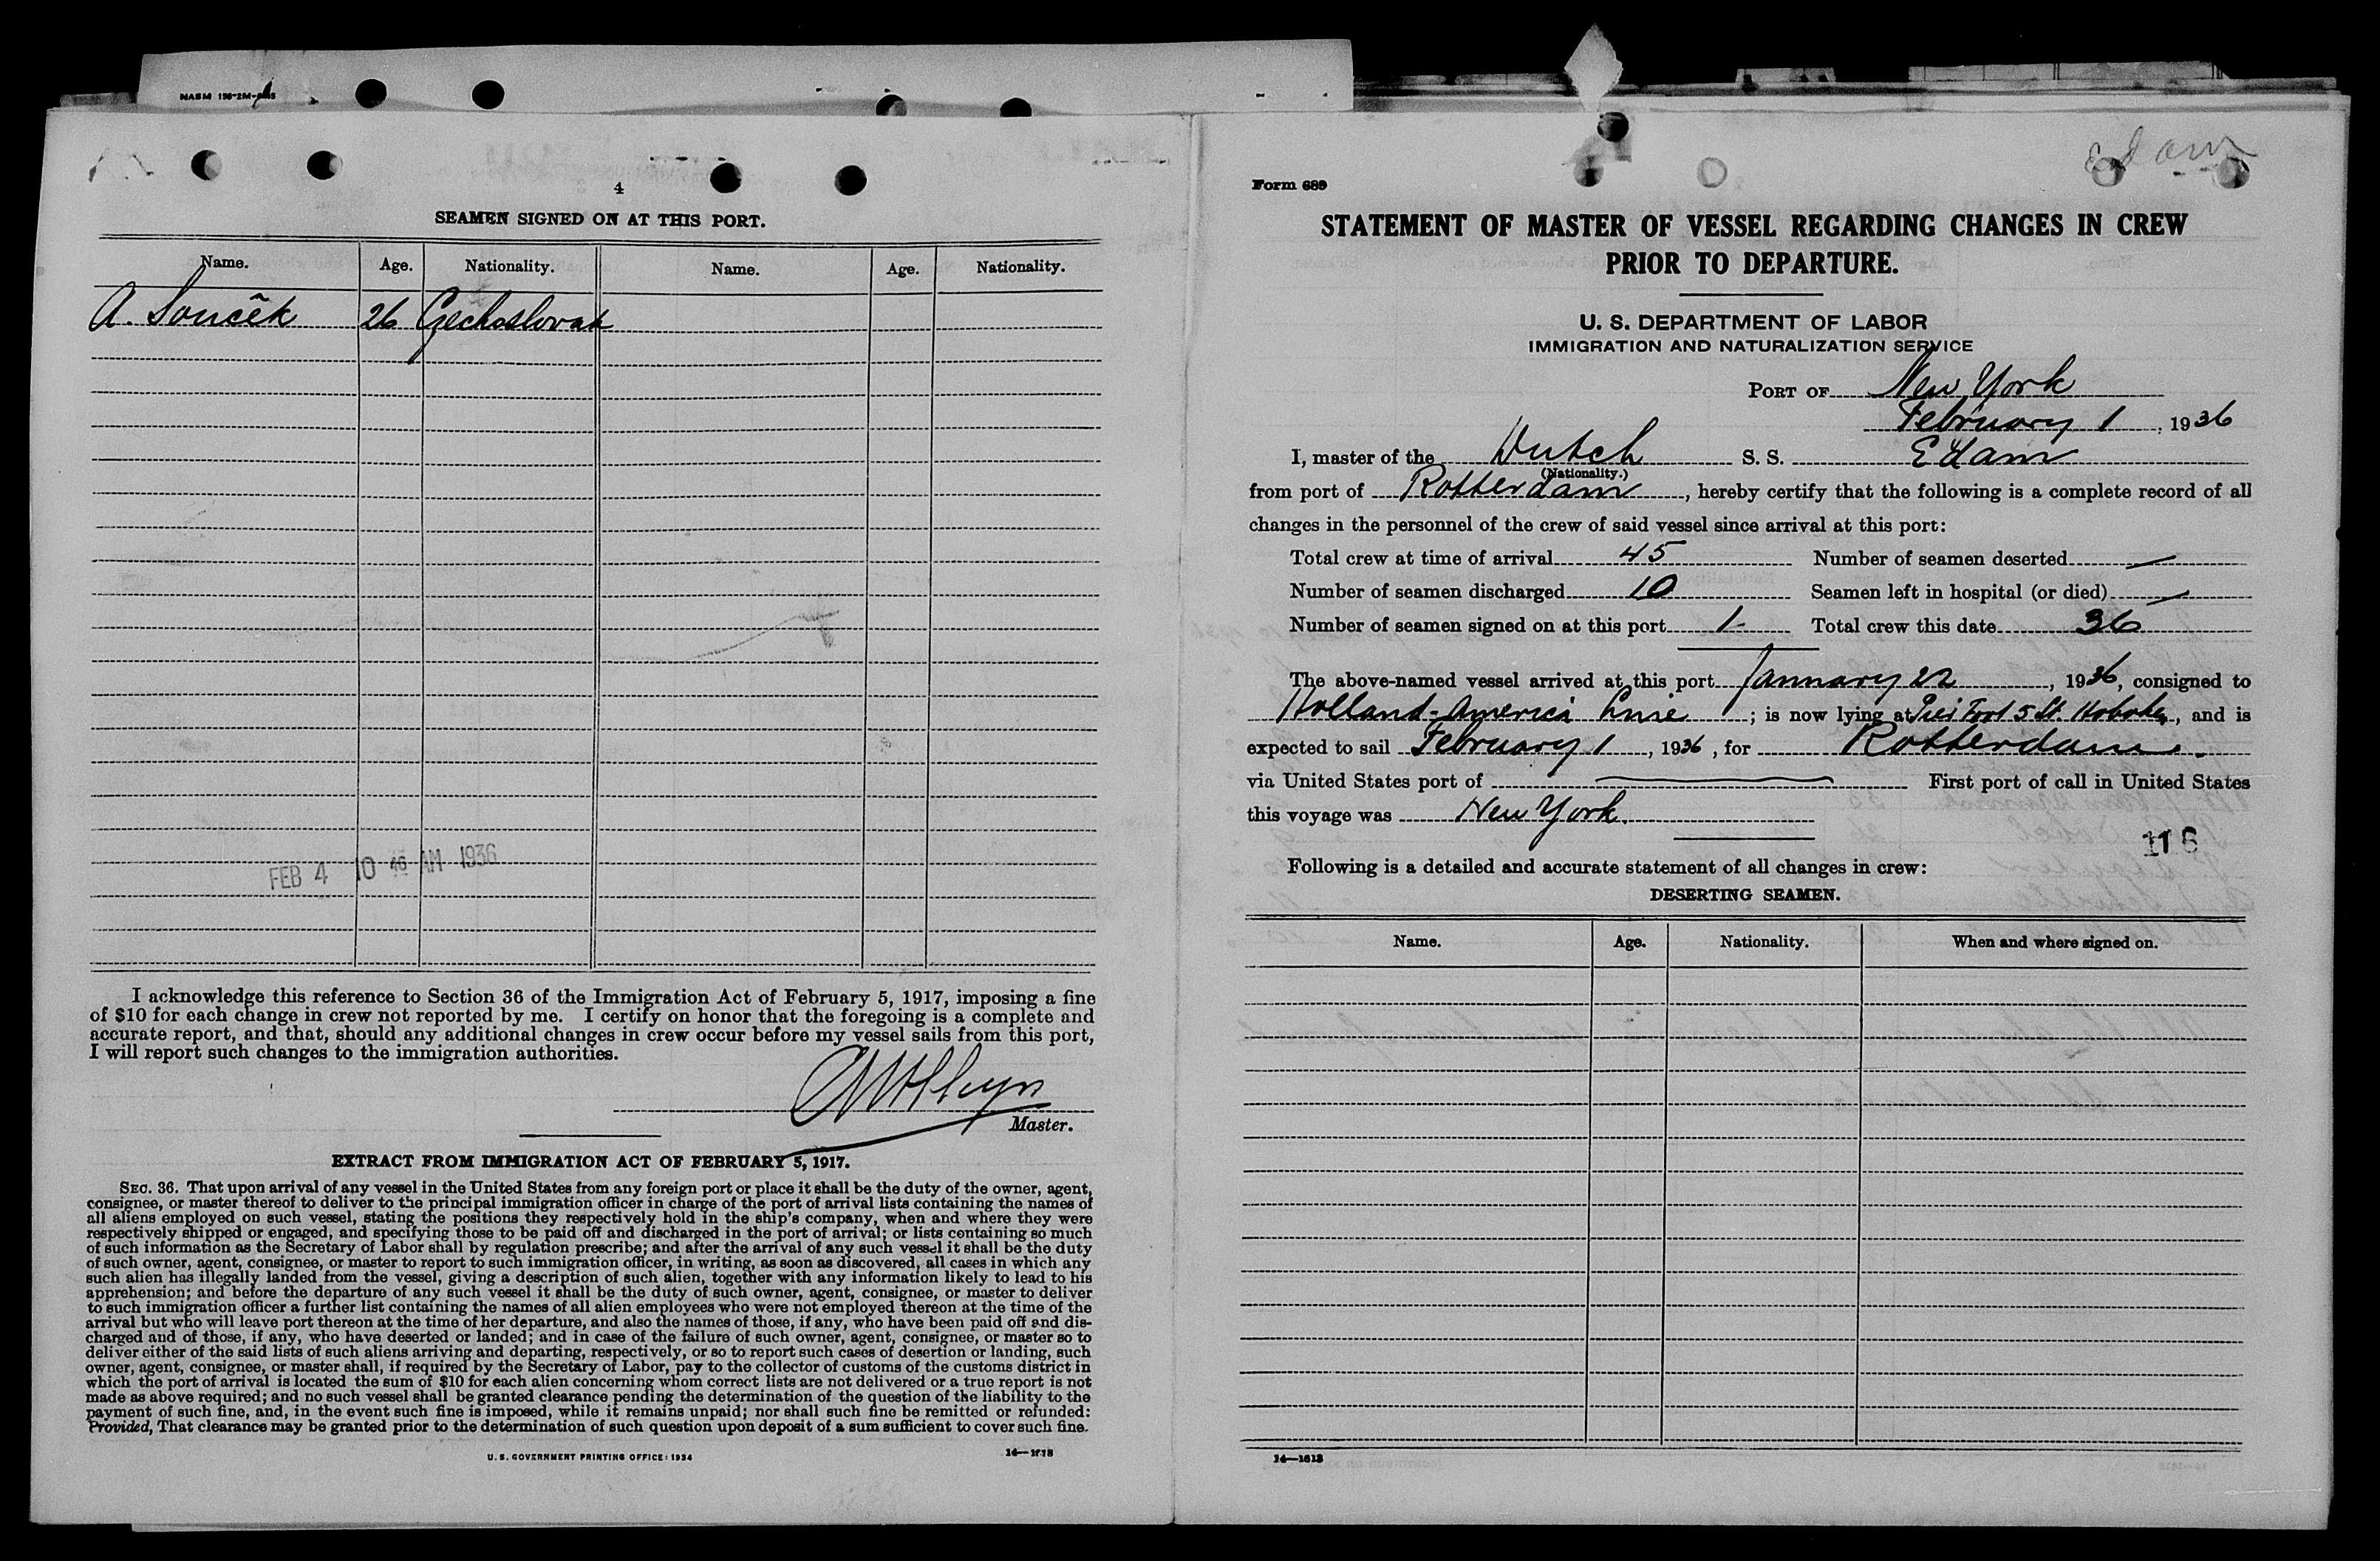 4
SEAMEN SIGNED ON AT THIS PORT.
Name. Age. Nationality. Name. Age. Nationality.
A. Souček 26 Czechoslovak
FEB 4 10 46 AM 1936
I acknowledge this reference to Section 36 of the Immigration Act of February 5, 1917, imposing a fine
of $10 for each change in crew not reported by me. I certify on honor that the foregoing is a complete and
accurate report, and that, should any additional changes in crew occur before my vessel sails from this port,
I will report such changes to the immigration authorities.
Master.
EXTRACT FROM IMMIGRATION ACT OF FEBRUARY 5, 1917.
SEC. 36. That upon arrival of any vessel in the United States from any foreign port or place it shall be the duty of the owner, agent,
consignee, or master thereof to deliver to the principal immigration officer in charge of the port of arrival lists containing the names of
all aliens employed on such vessel, stating the positions they respectively hold in the ship's company, when and where they were
respectively shipped or engaged, and specifying those to be paid off and discharged in the port of arrival; or lists containing so much
of such information as the Secretary of Labor shall by regulation prescribe; and after the arrival of any such vessel it shall be the duty
of such owner, agent, consignee, or master to report to such immigration officer, in writing, as soon as discovered, all cases in which any
such alien has illegally landed from the vessel, giving a description of such alien, together with any information likely to lead to his
apprehension; and before the departure of any such vessel it shall be the duty of such owner, agent, consignee, or master to deliver
to such immigration officer a further list containing the names of all alien employees who were not employed thereon at the time of the
arrival but who will leave port thereon at the time of her departure, and also the names of those, if any, who have been paid off and dis-
charged and of those, if any, who have deserted or landed; and in case of the failure of such owner, agent, consignee, or master so to
deliver either of the said lists of such aliens arriving and departing, respectively, or so to report such cases of desertion or landing, such
owner, agent, consignee, or master shall, if required by the Secretary of Labor, pay to the collector of customs of the customs district in
which the port of arrival is located the sum of $10 for each alien concerning whom correct lists are not delivered or a true report is not
made as above required; and no such vessel shall be granted clearance pending the determination of the question of the liability to the
payment of such fine, and, in the event such fine is imposed, while it remains unpaid; nor shall such fine be remitted or refunded:
Provided, That clearance may be granted prior to the determination of such question upon deposit of a sum sufficient to cover such fine.
U. S. GOVERNMENT PRINTING OFFICE: 1934 14—1618
Edam
Form 689
STATEMENT OF MASTER OF VESSEL REGARDING CHANGES IN CREW
PRIOR TO DEPARTURE.
U. S. DEPARTMENT OF LABOR
IMMIGRATION AND NATURALIZATION SERVICE
PORT OF New York
February 1, 1936
I, master of the Dutch S. S. Edam
(Nationality.)
from port of Rotterdam, hereby certify that the following is a complete record of all
changes in the personnel of the crew of said vessel since arrival at this port:
Total crew at time of arrival 45 Number of seamen deserted —
Number of seamen discharged 10 Seamen left in hospital (or died) —
Number of seamen signed on at this port 1 Total crew this date 36
The above-named vessel arrived at this port January 22, 1936, consigned to
Holland-America Line; is now lying at Pier Foot 5 St. Hoboken, and is
expected to sail February 1, 1936, for Rotterdam.
via United States port of — First port of call in United States
this voyage was New York.
116
Following is a detailed and accurate statement of all changes in crew:
DESERTING SEAMEN.
Name. Age. Nationality. When and where signed on.
14—1618